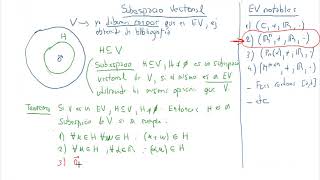 Subespacio Vectorial
V → ya dibujado conjunto que es EV, es
obtenido de bibliografía
H
H ⊆ V
Subespacio H ⊆ V, H ≠ ∅ es un subespacio
vectorial de V, si él mismo es un EV
utilizando las mismas operac. que V
Teorema Si V es un EV, H ⊆ V, H ≠ ∅. Entonces H es
Subespacio de V si se cumple.
1) ∀u ∈ H ∀w ∈ H : (u+w) ∈ H
2) ∀u ∈ H, ∀α ∈ ℝ : (α·u) ∈ H
3)
EV notables
1) (ℂ, +, ℝ, ·)
2) (ℝⁿ, +, ℝ, ·)
3) (Pₙ(x), +, ℝ, ·)
4) (ℝᵐˣⁿ, +, ℝ, ·)
- Func continuas [a,b]
- etc